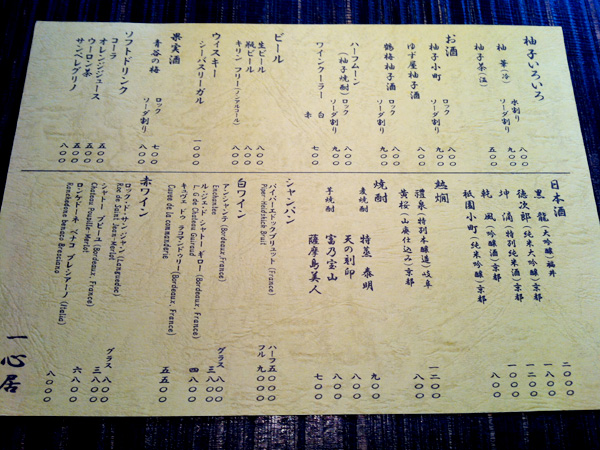 柚子いろいろ
柚 華(冷) 水割り 八〇〇
ロック 九〇〇
ソーダ割り 八〇〇
柚子茶(温) 五〇〇
お酒
柚子小町 ロック 八〇〇
ソーダ割り 八〇〇
ゆず屋柚子酒
鶴梅柚子酒 ロック 九〇〇
ソーダ割り 八〇〇
ハーフムーン
(柚子焼酎) ロック 九〇〇
ソーダ割り 九〇〇
ワインクーラー 白 八〇〇
赤 八〇〇
ビール
生ビール 八〇〇
瓶ビール 八〇〇
キリン フリー(ノンアルコール) 八〇〇
ウィスキー
シーバスリーガル 一〇〇〇
果実酒
青谷の梅 ロック 七〇〇
ソーダ割り 八〇〇
ソフトドリンク
コーラ 五〇〇
オレンジジュース 五〇〇
ウーロン茶 五〇〇
サンペレグリノ 八〇〇
日本酒
黒 龍(大吟醸)福井 二〇〇〇
徳次郎(純米大吟醸)京都 一八〇〇
坤 滴(特別純米酒)京都 一二〇〇
乾 風(吟醸酒)京都 一〇〇〇
祇園小町(純米吟醸)京都 一〇〇〇
熱燗
禮泉(特別本醸造)岐阜 一二〇〇
黄桜(山廃仕込み)京都 八〇〇
焼酎
麦焼酎 特蒸 泰明 九〇〇
天の刻印 八〇〇
芋焼酎 富乃宝山 八〇〇
薩摩島美人 七〇〇
シャンパン
パイパーエドシック ブリュット (France) ハーフ 五〇〇〇
Piper-Heidsieck Brut フル 九〇〇〇
白ワイン
アンシャンテ (Bordeaux,France) グラス 八〇〇
Enchantee 三八〇〇
ル・ジェ・ド・シャトー ギロー (Bordeaux, France) 四八〇〇
Le G de Chateau Guiraud
キュヴェ ドゥ ラ コマンドゥリー (Bordeaux, France) 五五〇〇
Cuvee de la commanderie
赤ワイン
ロック・ド・サン・ジャン (Languedoc) グラス 八〇〇
Roc de Saint Jean-Merlot 三八〇〇
シャトー プピーユ (Bordeaux, France)
Chateau Poupille-Merlot 六八〇〇
ロンケドーネ ベナコ ブレシアーノ (Italia) 八〇〇〇
Ronchedone benaco-Bresciano
一心居